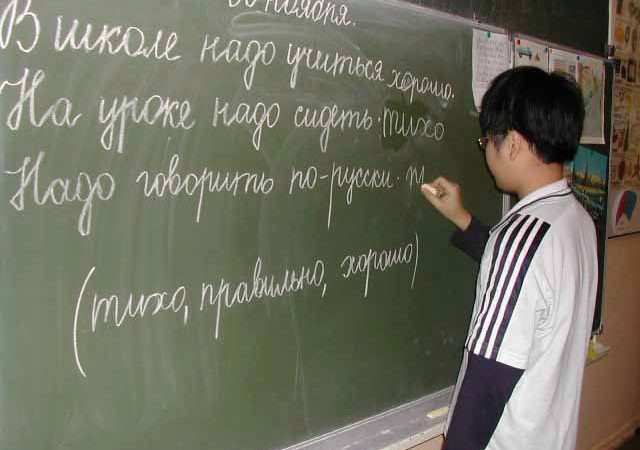 ноября.
В школе надо учиться хорошо.
На уроке надо сидеть тихо
Надо говорить по-русски
(тихо, правильно, хорошо)